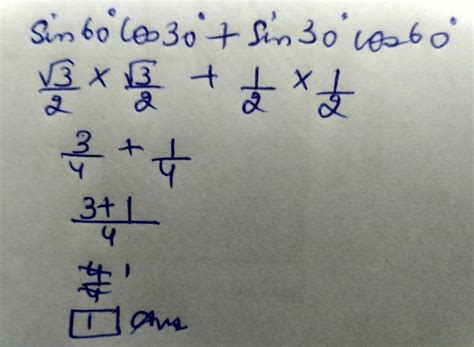 sin60° cos30° + sin30° cos60°
√3/2 × √3/2 + 1/2 × 1/2
3/4 + 1/4
3+1/4
4/4 1
1 Ans